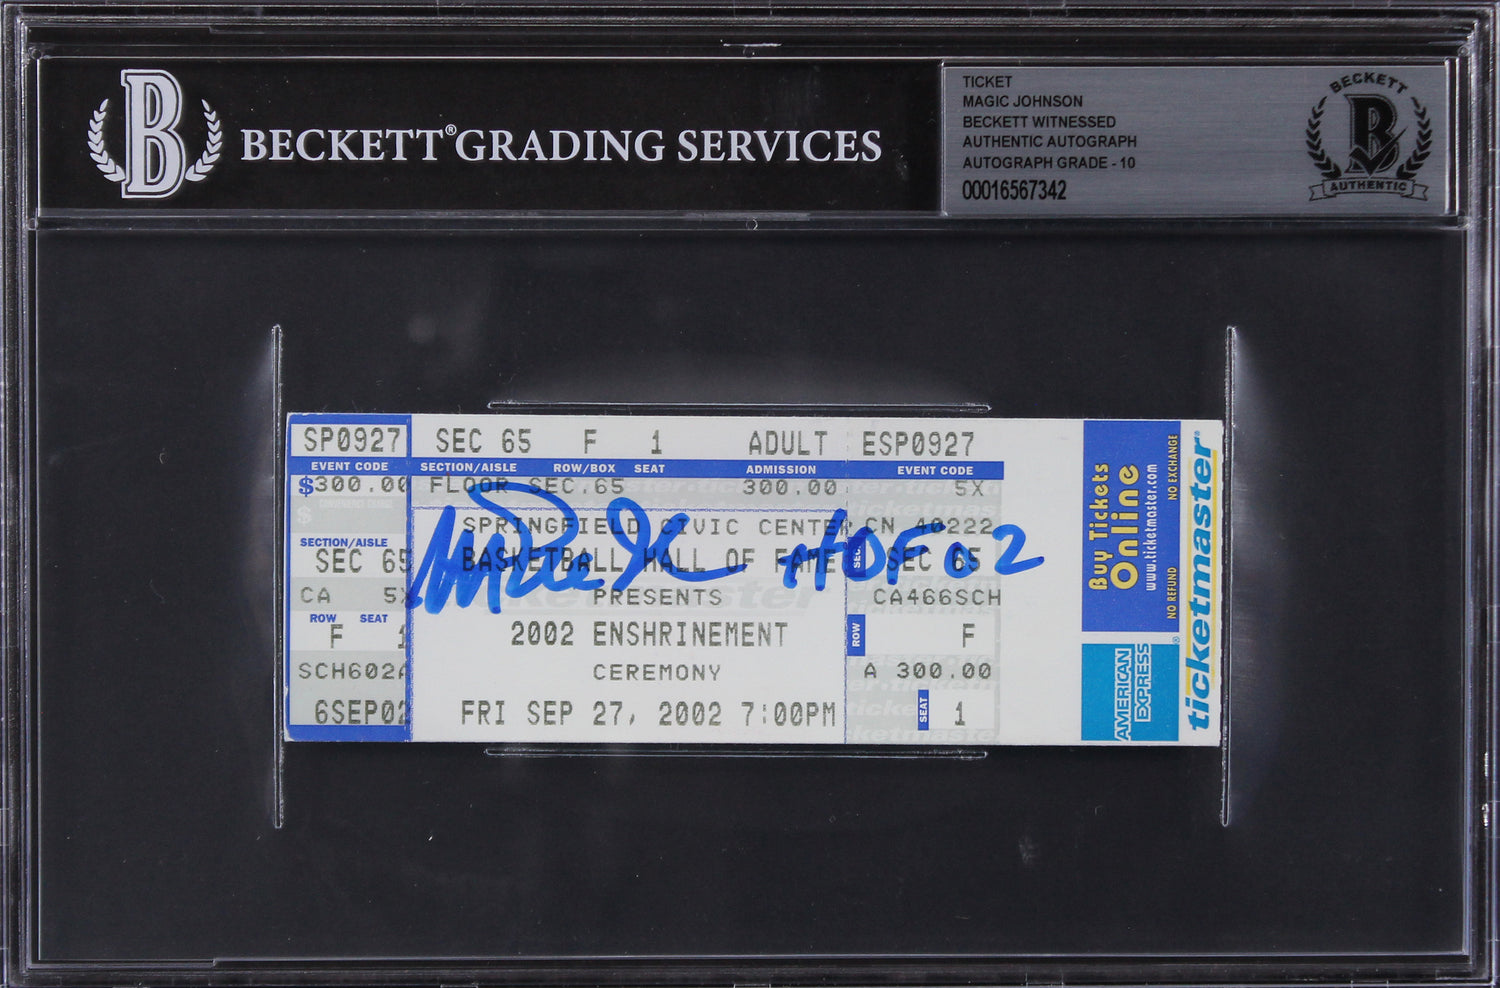 B BECKETT® GRADING SERVICES
TICKET
MAGIC JOHNSON
BECKETT WITNESSED
AUTHENTIC AUTOGRAPH
AUTOGRAPH GRADE - 10
00016567342
BECKETT
B
AUTHENTIC
SP0927 SEC 65 F 1 ADULT ESP0927
EVENT CODE SECTION/AISLE ROW/BOX SEAT ADMISSION EVENT CODE
$300.00 FLOOR SEC.65 300.00 5X
CONVENIENCE CHARGE
$
SPRINGFIELD CIVIC CENTER CN 40222
SECTION/AISLE
SEC 65 BASKETBALL HALL OF FAME SEC. SEC 65
HOF 02
CA 5X PRESENTS CA466SCH
ROW SEAT
F 1 2002 ENSHRINEMENT ROW F
SCH602A CEREMONY A 300.00
6SEP02 FRI SEP 27, 2002 7:00PM SEAT 1
Buy Tickets
Online
www.ticketmaster.com
NO REFUND NO EXCHANGE
AMERICAN
EXPRESS
®
ticketmaster®